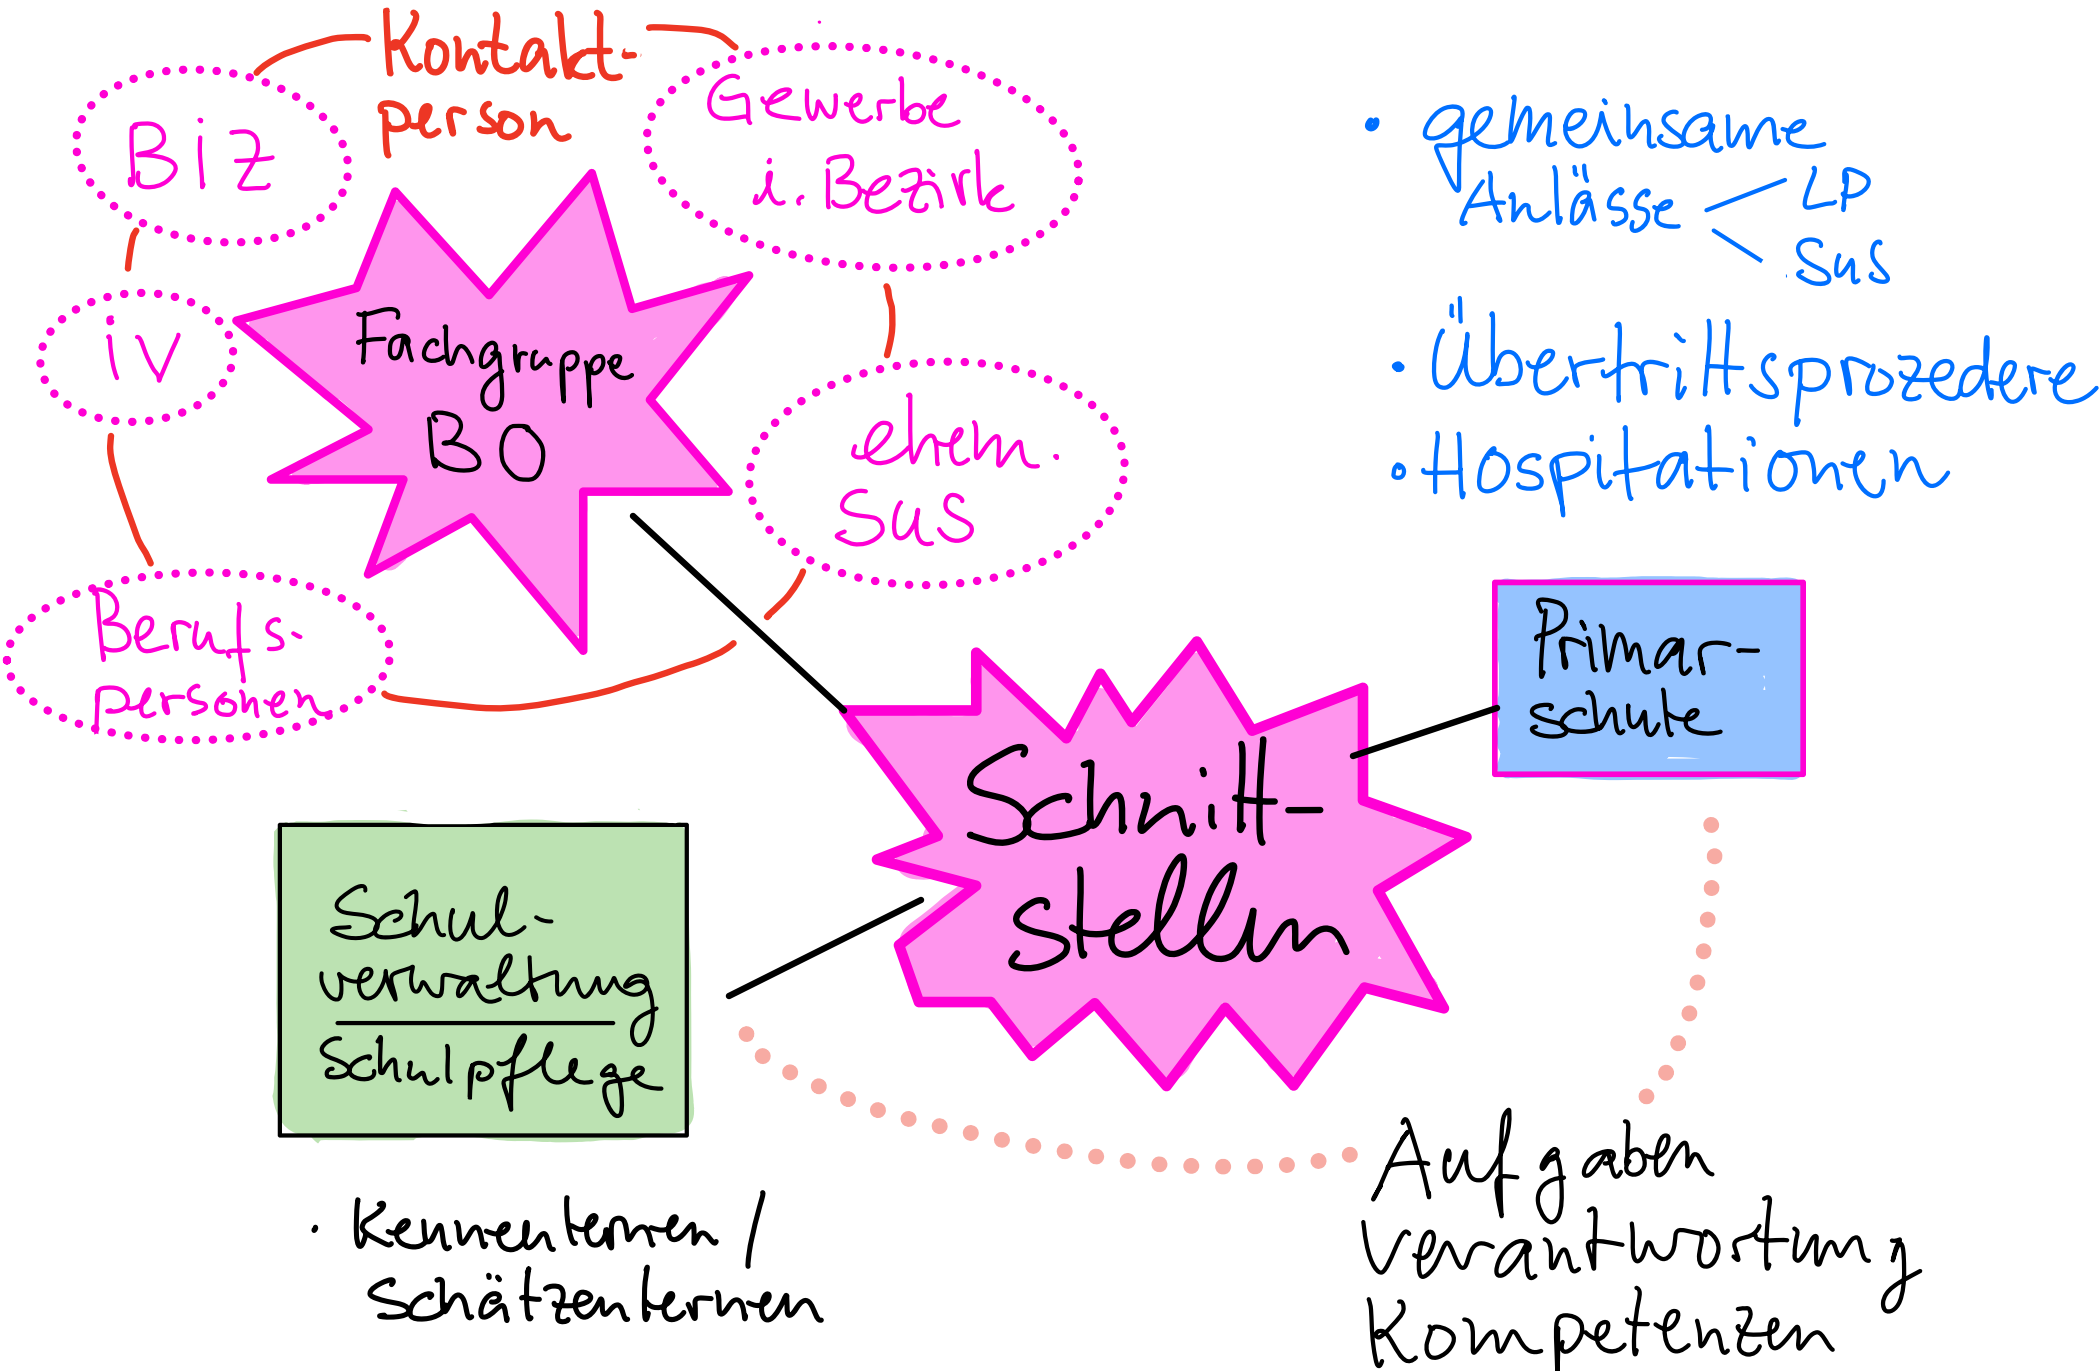 Kontakt-
person
BiZ
Gewerbe
i. Bezirk
IV
Fachgruppe
BO
ehem.
SuS
Berufs-
personen
• gemeinsame
Anlässe
LP
SuS
• Übertrittsprozedere
• Hospitationen
Primar-
schule
Schnitt-
stellen
Schul-
verwaltung
Schulpflege
• Kennenlernen /
Schätzenlernen
Aufgaben
Verantwortung
Kompetenzen